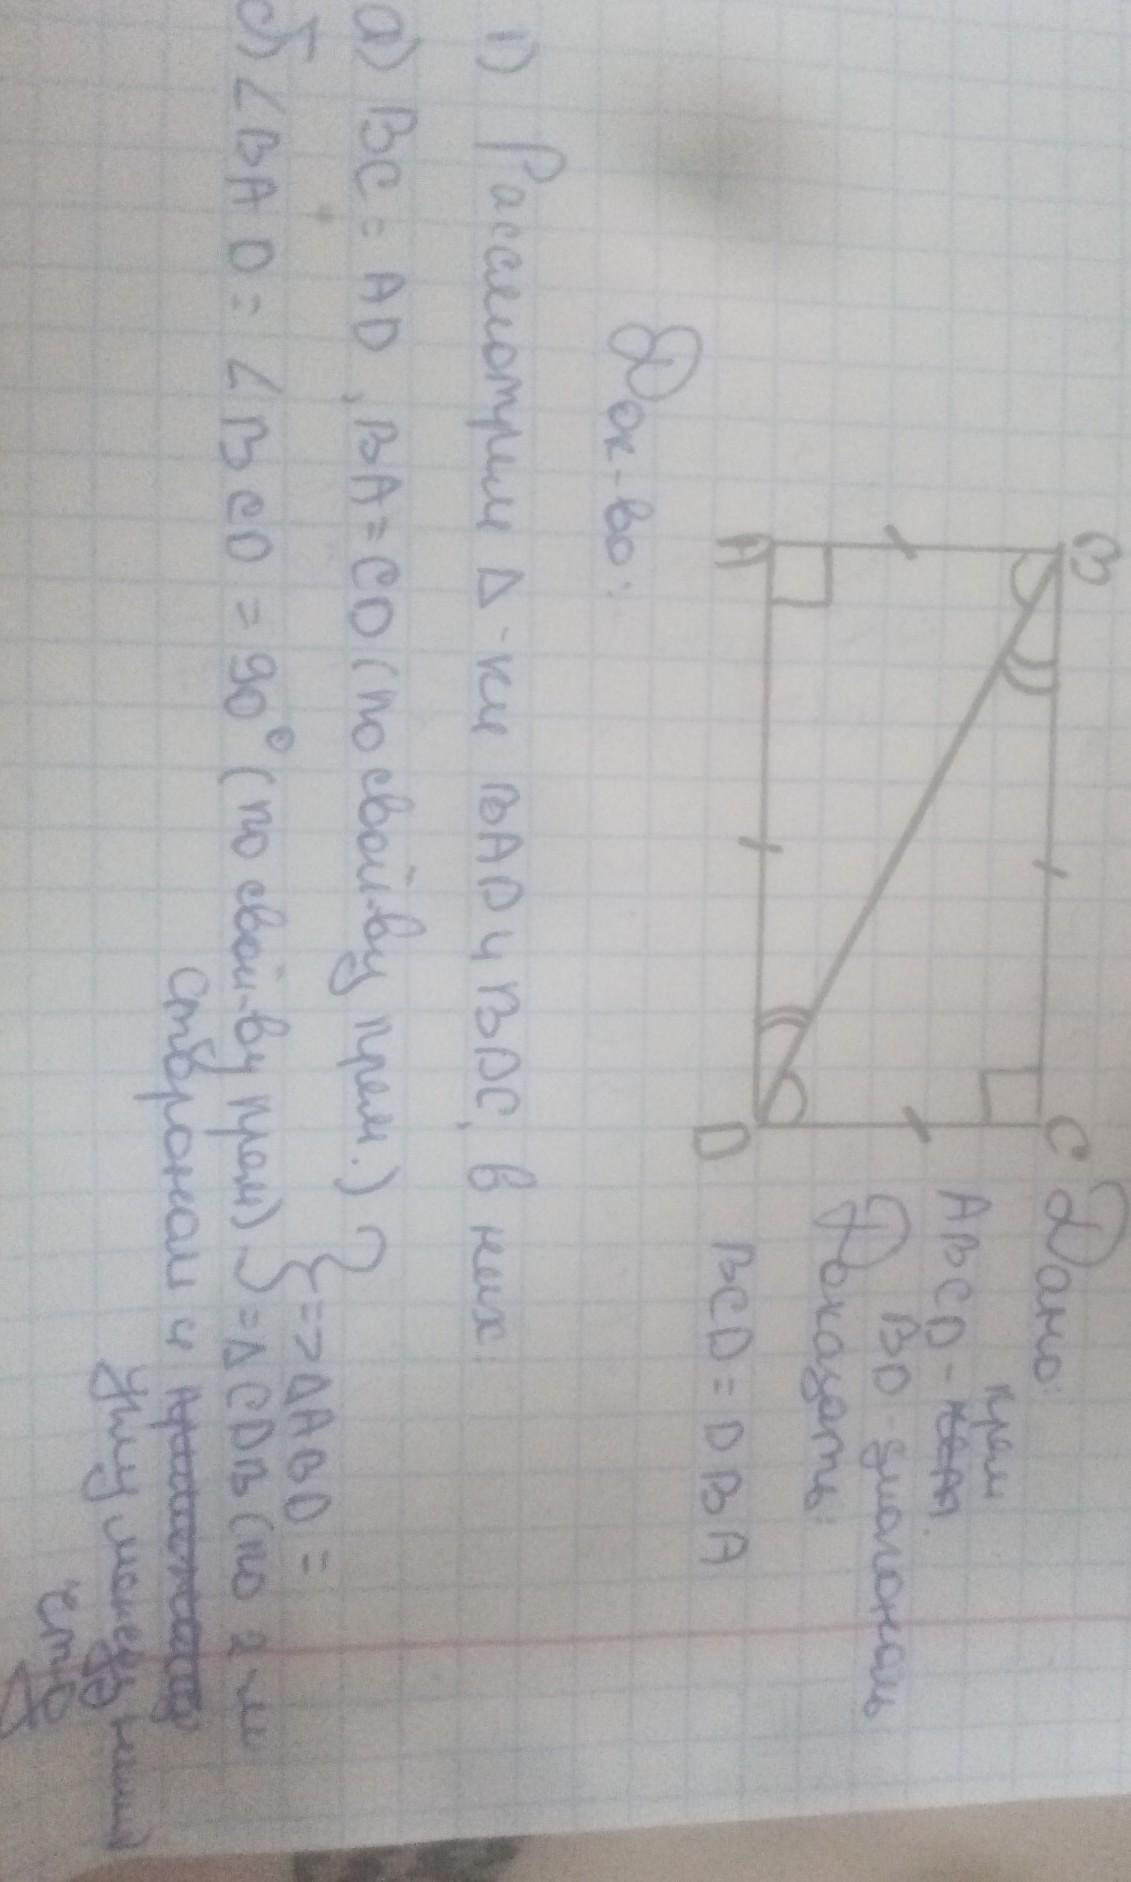 B
C
A
D
Дано:
прям
ABCD -
BD - диагональ
Доказать:
BCD = DBA
Док-во:
1) Рассмотрим Δ-ки BAD и BDC, в них:
а) BC = AD, BA = CD (по свой-ву прям.)
} => ΔABD =
б) ∠BAD = ∠BCD = 90° (по свой-ву прям) = ΔCDB (по 2-м
сторонам и
углу между ними